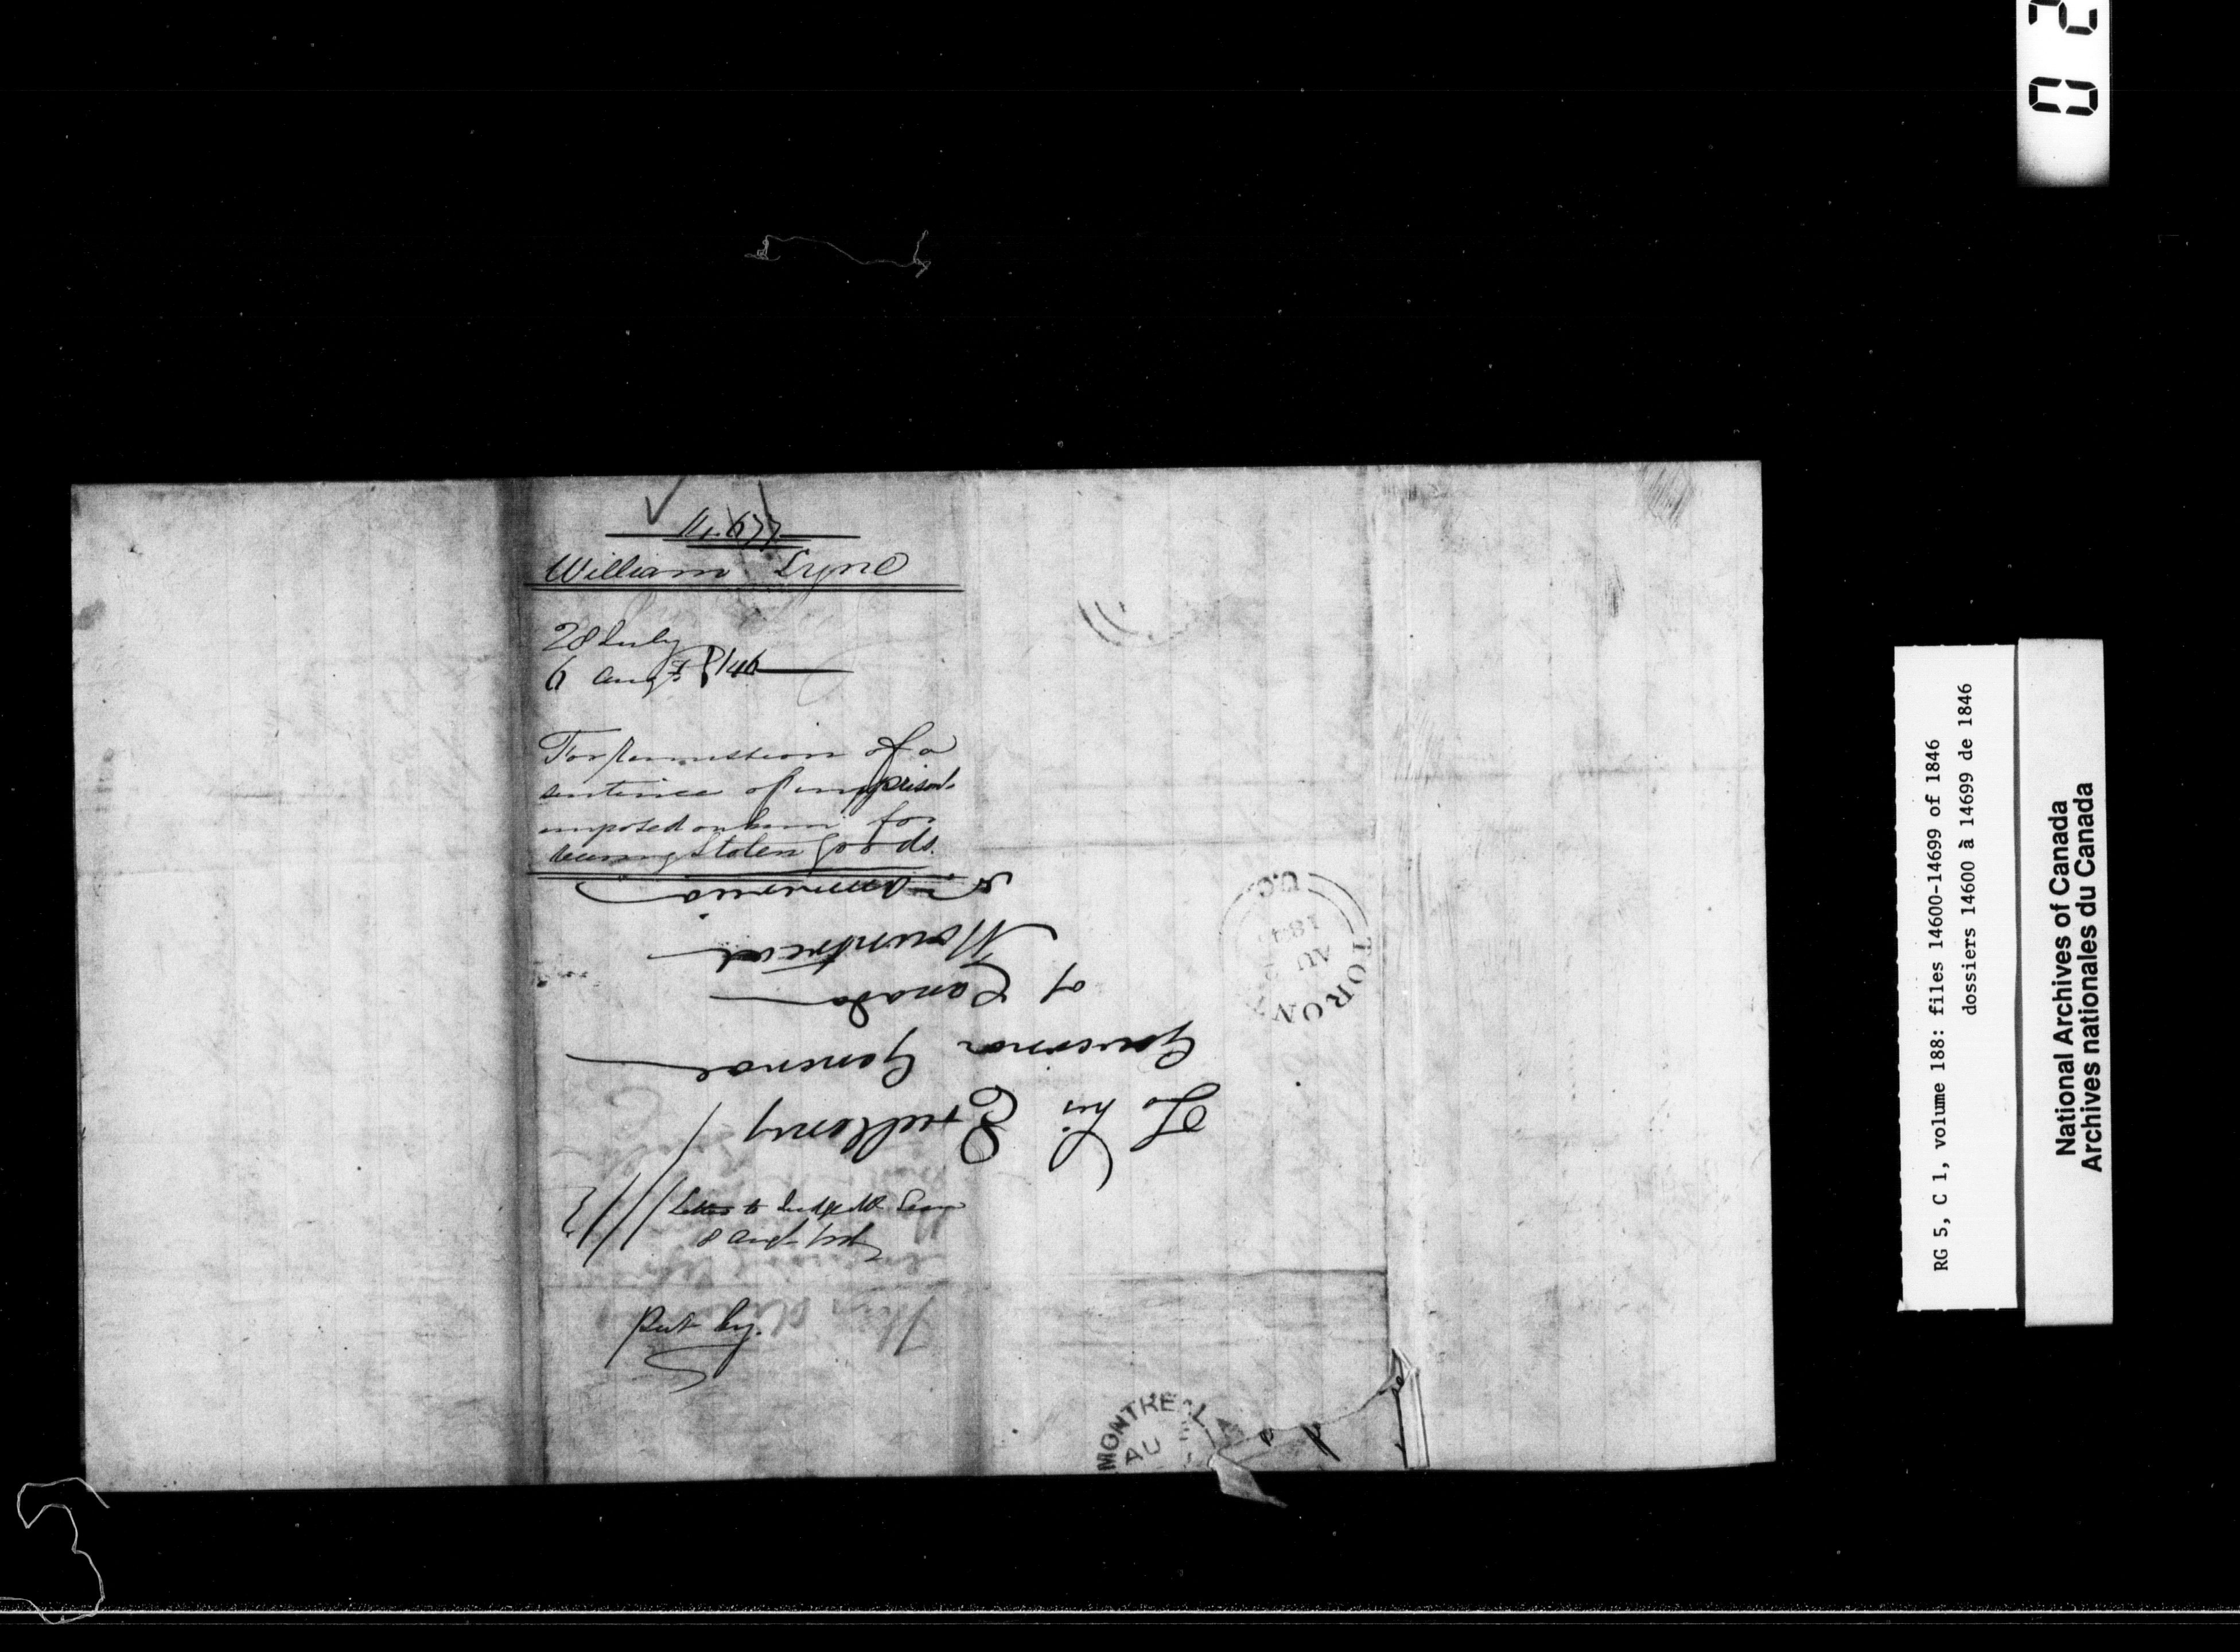 No. 677
William Lyne
28 July
6 Augt 1846
For remission of a
sentence of imprisont.
imposed on him for
receiving Stolen Goods.
To his Excellency
Governor General
of Canada
Mountreal
Letter to Judge
8 Augt
Put by.
TORON
AU
1846
U.C.
MONTREAL
AU
02
RG 5, C 1, volume 188: files 14600-14699 of 1846
dossiers 14600 à 14699 de 1846
National Archives of Canada
Archives nationales du Canada